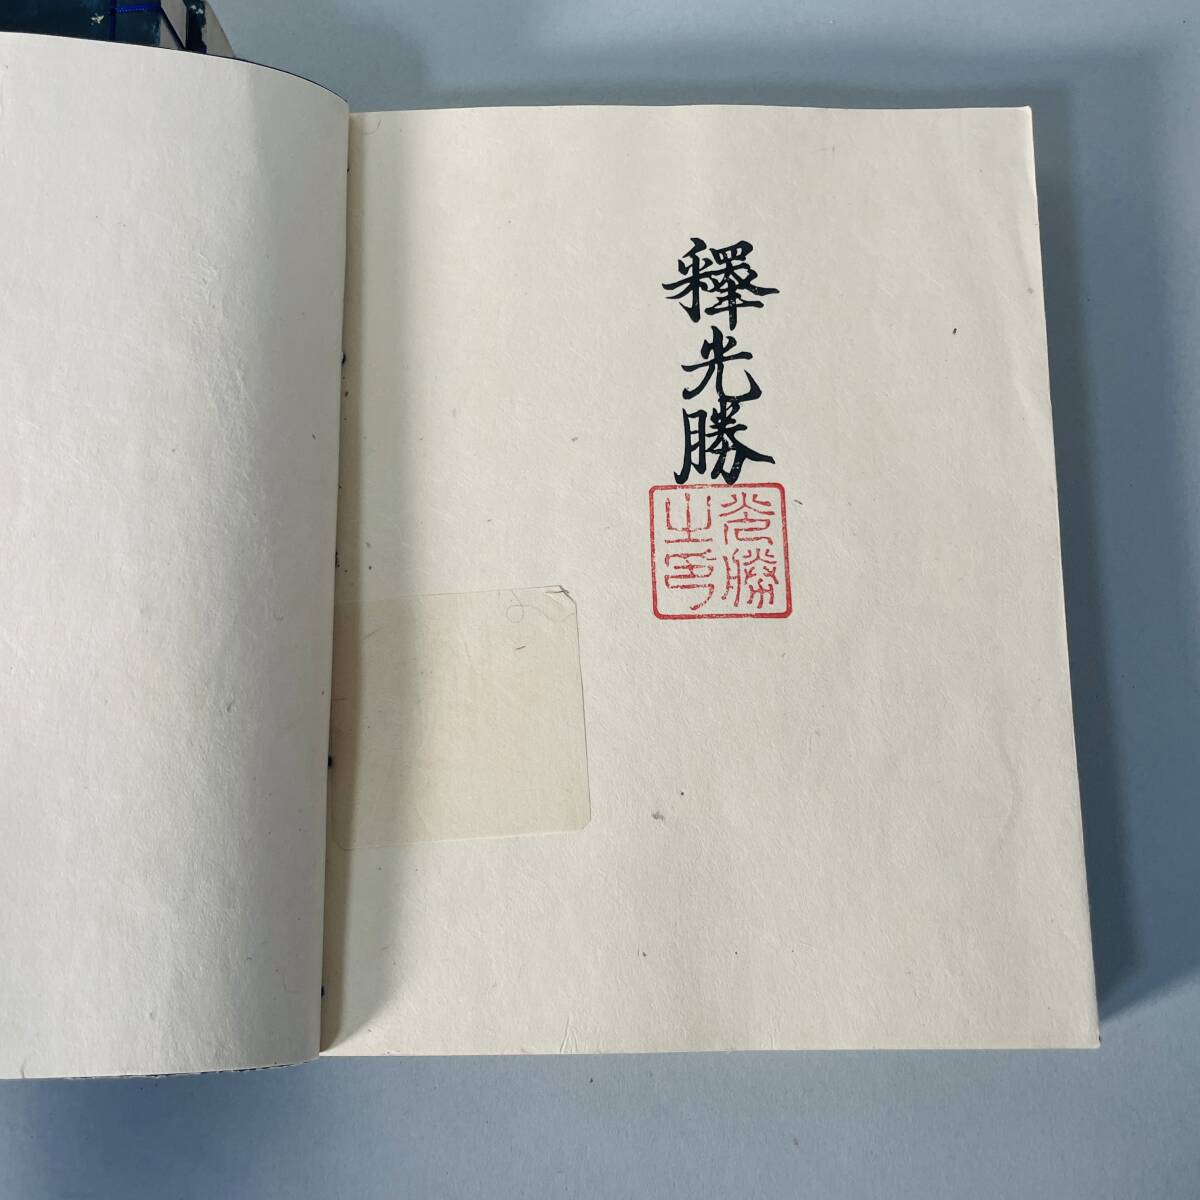 釋光勝
光勝
之印